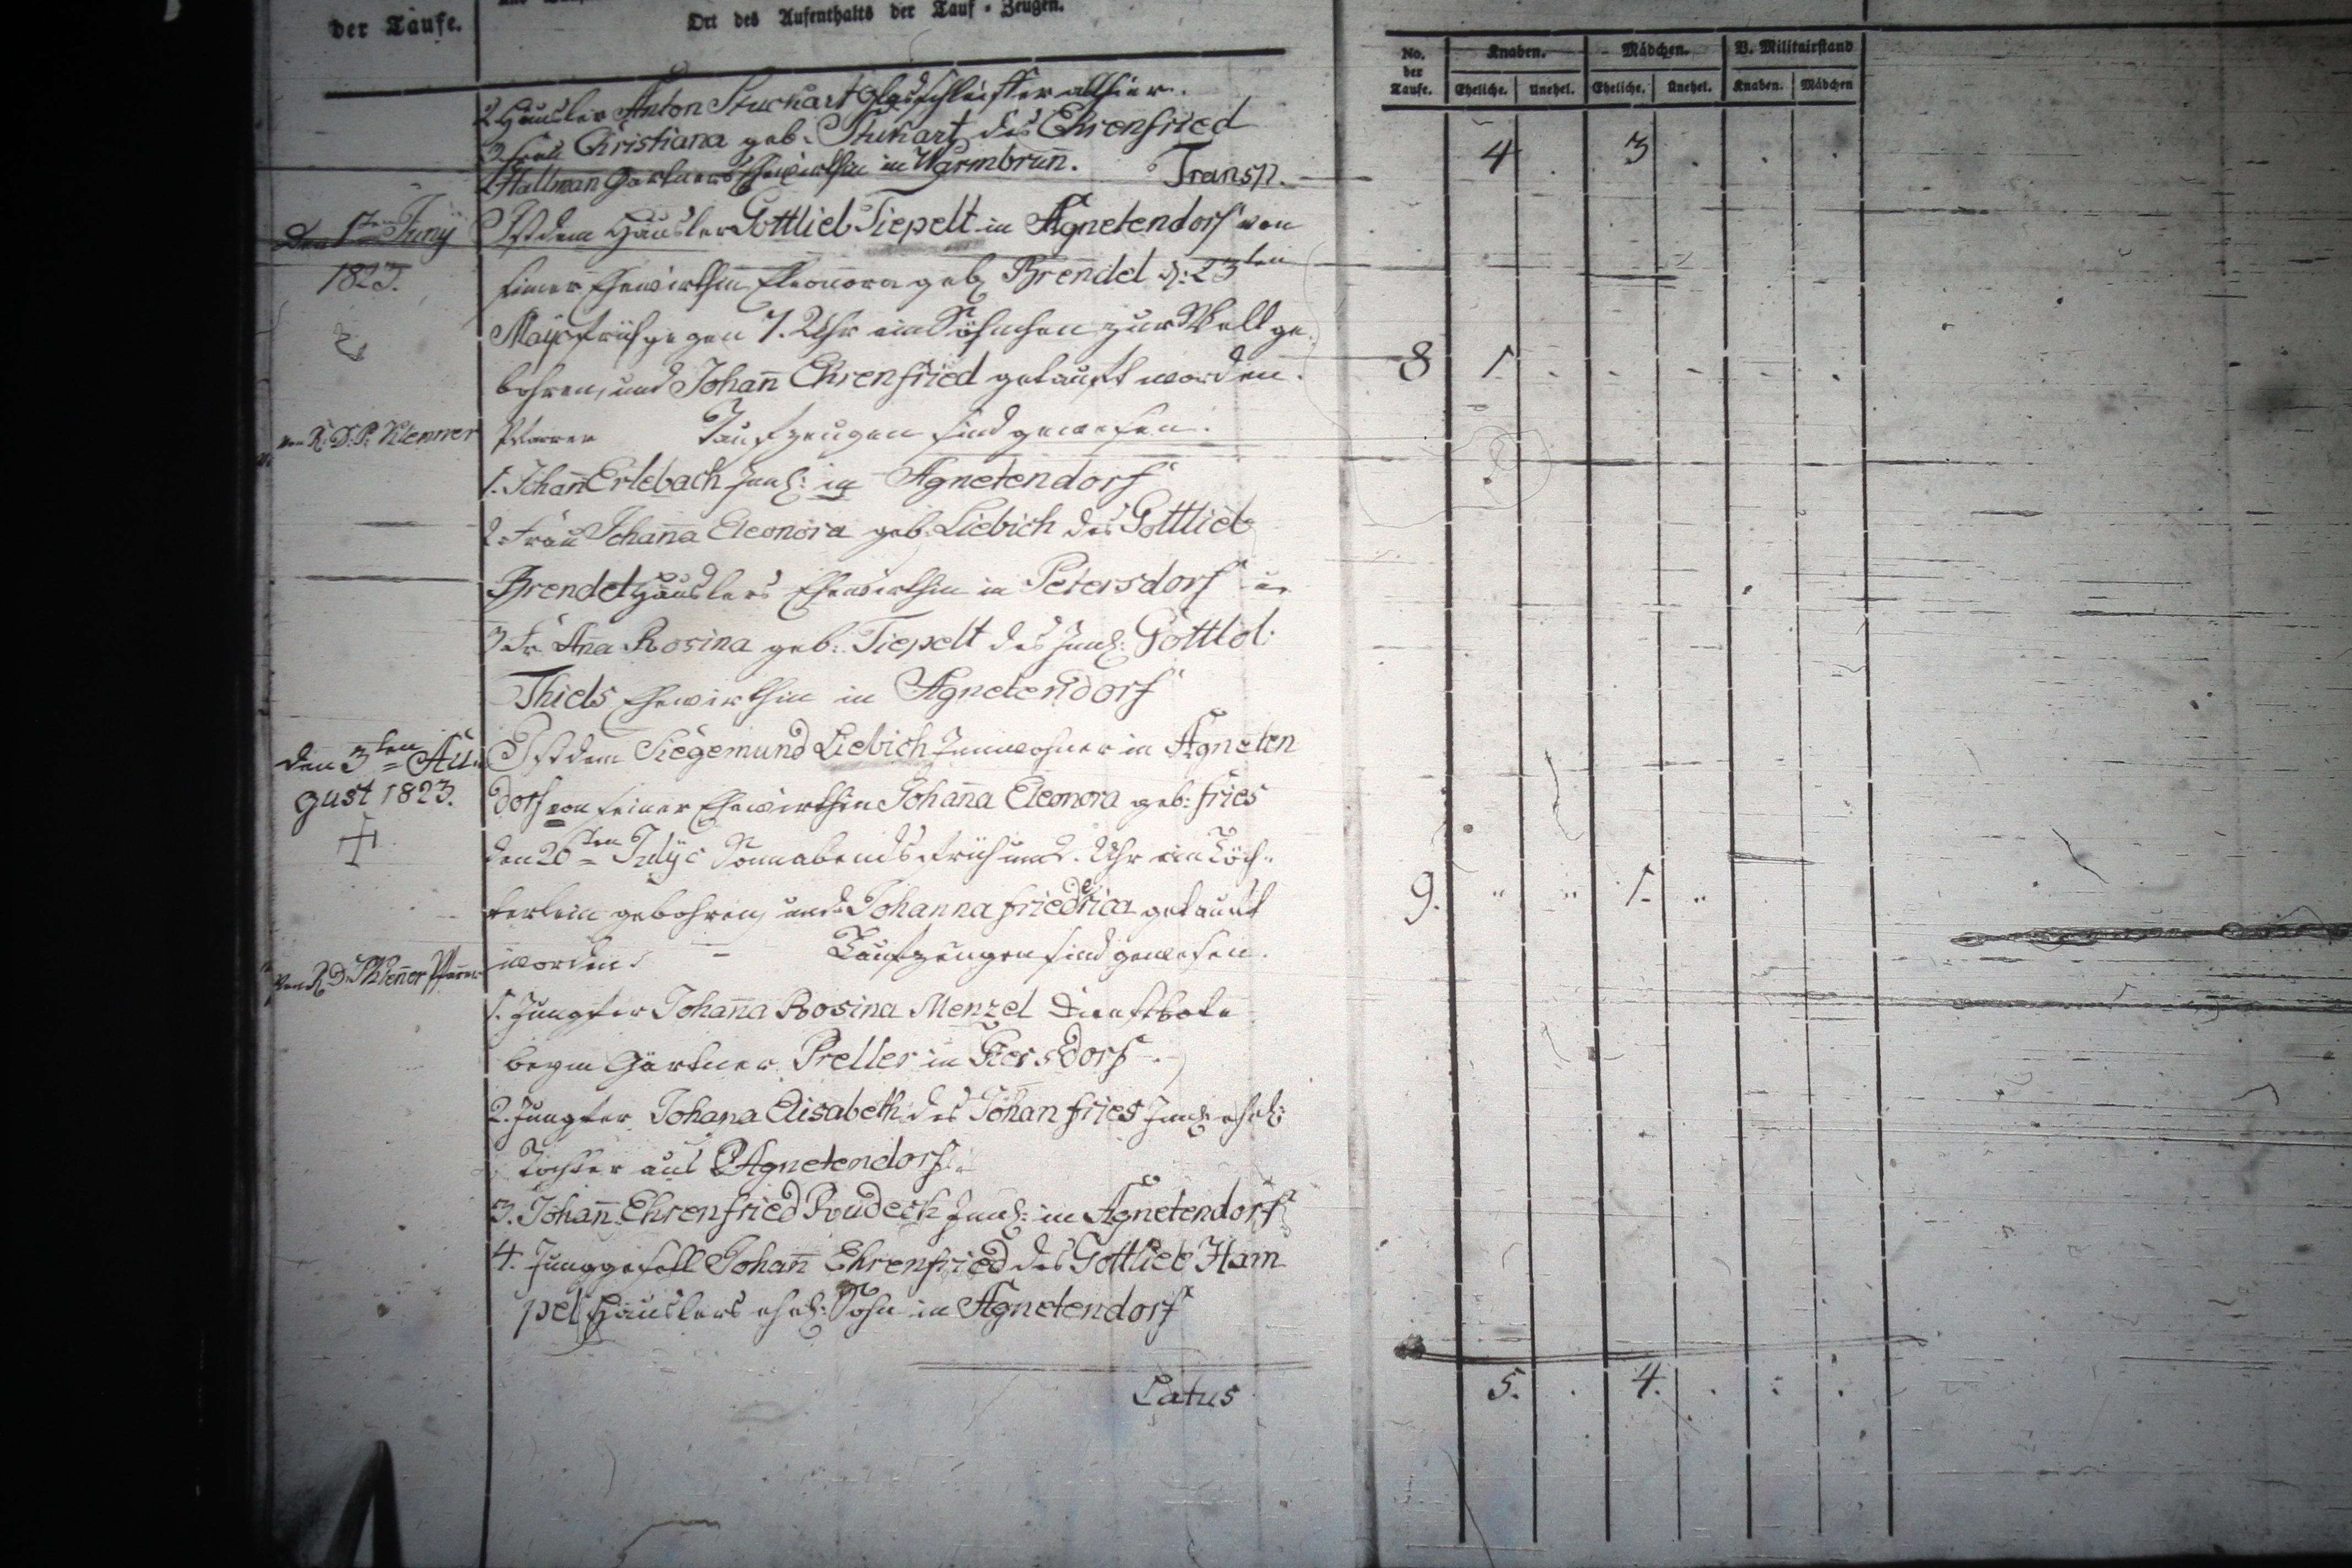 der Taufe.
Ort des Aufenthalts der Tauf-Zeugen.
No. der Taufe.
Knaben. Mädchen. V. Militairstand
Eheliche. Unehel. Eheliche. Unehel. Knaben. Mädchen
2 Häusler Anton Stuckart Glasschleiffer allhier.
3 Frau Christiana geb. Stukart des Ehrenfried
Hallman Gärtners Ehewirthin in Warmbrun̄. Transp.
4 3 . . .
Den 1ten Juny Ist dem Häusler Gottlieb Tiepelt in Agnetendorf von
1823. seiner Ehewirthin Eleonora geb. Brendel d: 23ten
May früh gegen 7. Uhr ein Söhnchen zur Welt ge-
bohren, und Johan̄ Ehrenfried getauft worden.
8 1 . . . . .
von R. D. P. Klenner Pfarrer Taufzeugen sind gewesen.
1. Johan̄ Erlebach Inw: in Agnetendorf
2. Frau Johan̄a Eleonora geb. Liebich des Gottlieb
Brendel Häuslers Ehewirthin in Petersdorf u.
3. Fr. An̄a Rosina geb: Tiepelt des Inw: Gottlob:
Thiels Ehewirthin in Agnetendorf
den 3ten Au- Ist dem Siegemund Liebich Innwohner in Agneten
gust 1823. dorf von seiner Ehewirthin Johan̄a Eleonora geb: Fries
den 26ten July Sonnabends früh um 2. Uhr ein Töch-
terlein gebohren, und Johanna Friedrica getauft
9. " " 1. "
von R. D. P. Klen̄er Pfarrer worden. - Taufzeugen sind gewesen.
1. Jungfer Johan̄a Rosina Menzel Dienstbote
beym Gärtner Preller in Giersdorf.
2. Jungfer Johana Elisabeth des Johan Fries Inw: ehel:
Tochter aus Agnetendorf.
3. Johan̄ Ehrenfried Rudeck Inw: in Agnetendorf
4. Junggesell Johan̄ Ehrenfried des Gottlieb Ham
pel Häuslers ehel: Sohn in Agnetendorf
Latus 5. . 4. . : .